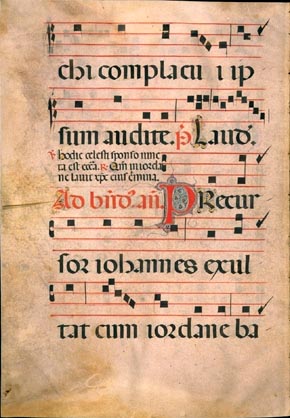 chi complacu i ip
sum audite. p̄s Laudō.
℟ hodie celesti sponso iuncta
ta est eccā. ℟. Qm̄ in iorda
ne lauit xp̄c eius c̄mina.
Ad bn̄d̄. an̄. PRecur
sor iohannes exul
tat cum iordane ba